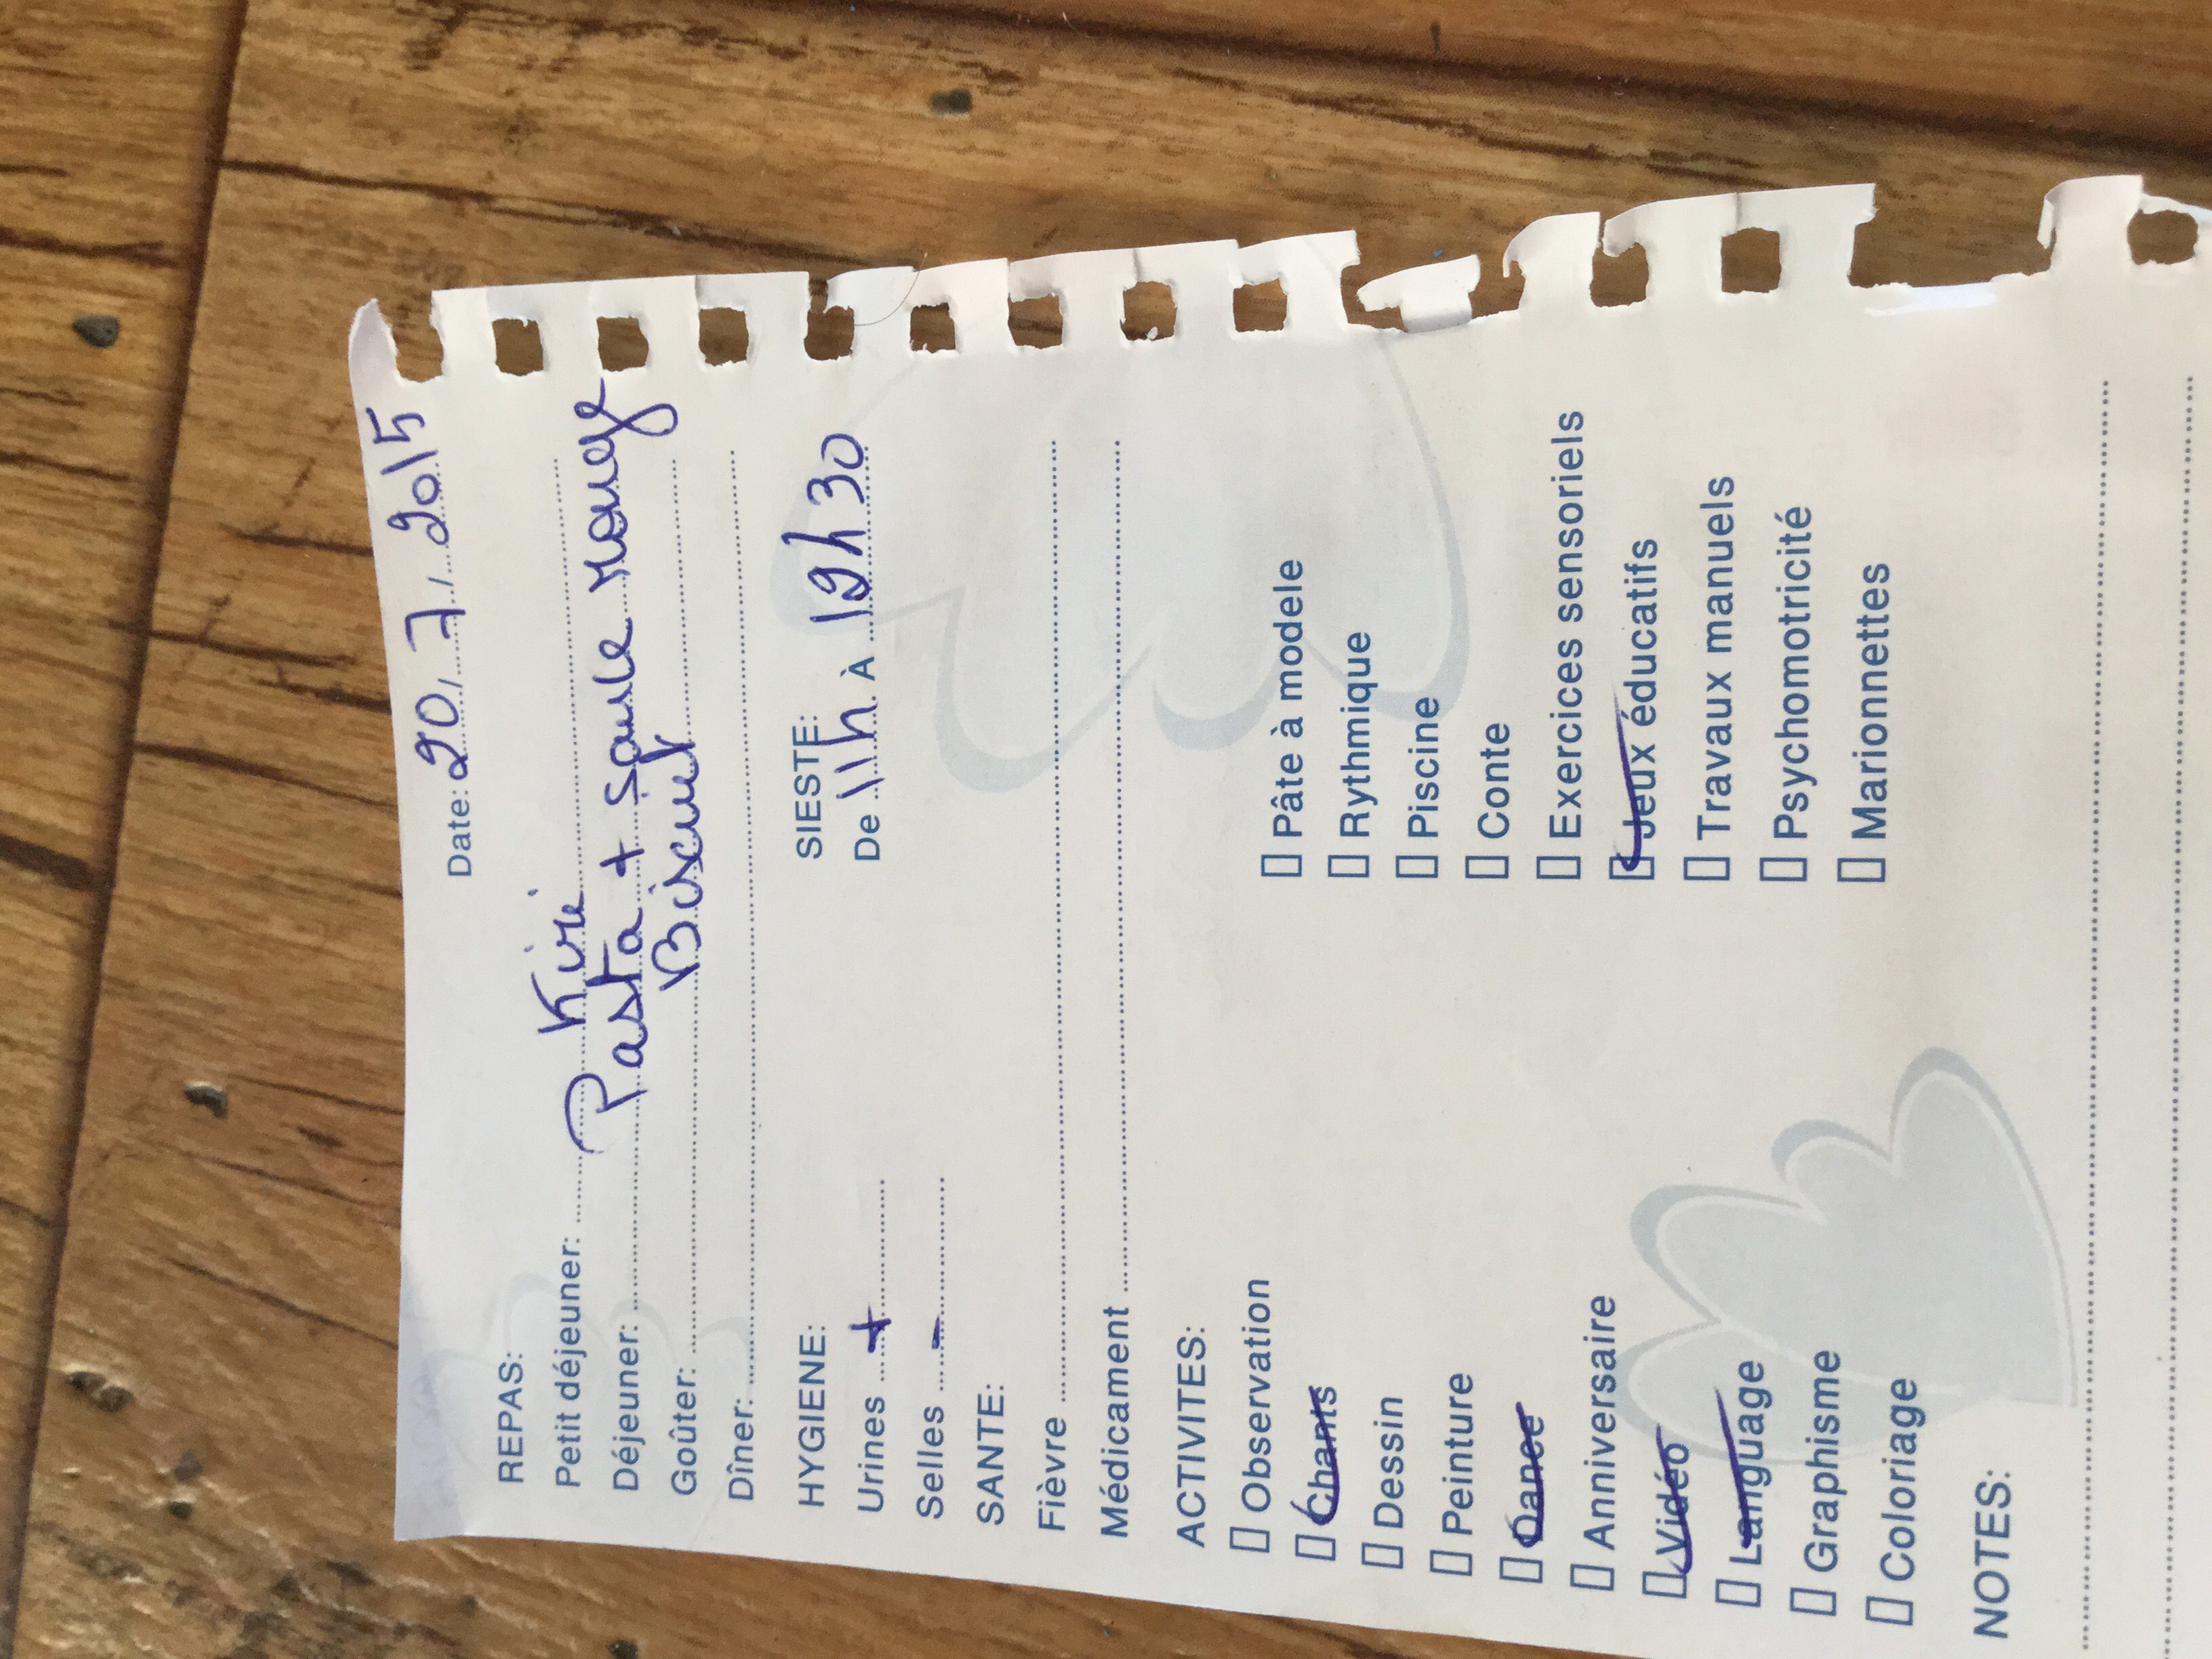 Date: 20/7/2015
REPAS:
Petit déjeuner: Kiri
Déjeuner: Pasta + saule rouge
Goûter: Biscuit
Dîner:
HYGIENE: SIESTE:
Urines + De 11h À 12h30
Selles -
SANTE:
Fièvre
Médicament
ACTIVITES:
Observation
Chants
Dessin
Peinture
Dance
Anniversaire
Vidéo
Language
Graphisme
Coloriage
Pâte à modele
Rythmique
Piscine
Conte
Exercices sensoriels
Jeux éducatifs
Travaux manuels
Psychomotricité
Marionnettes
NOTES: